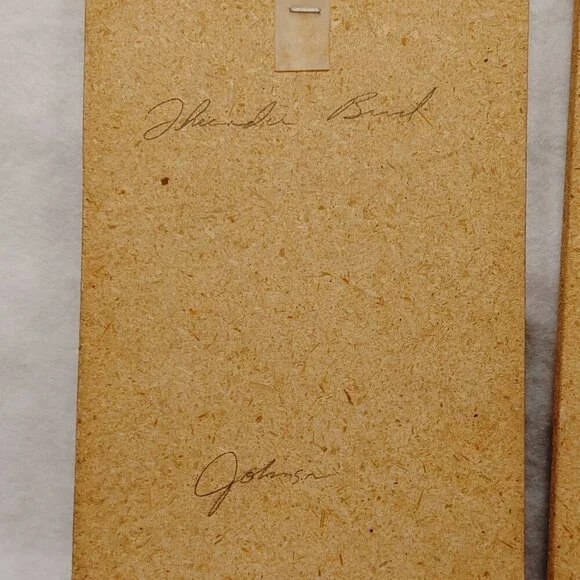 Thunder Bird
Johnson